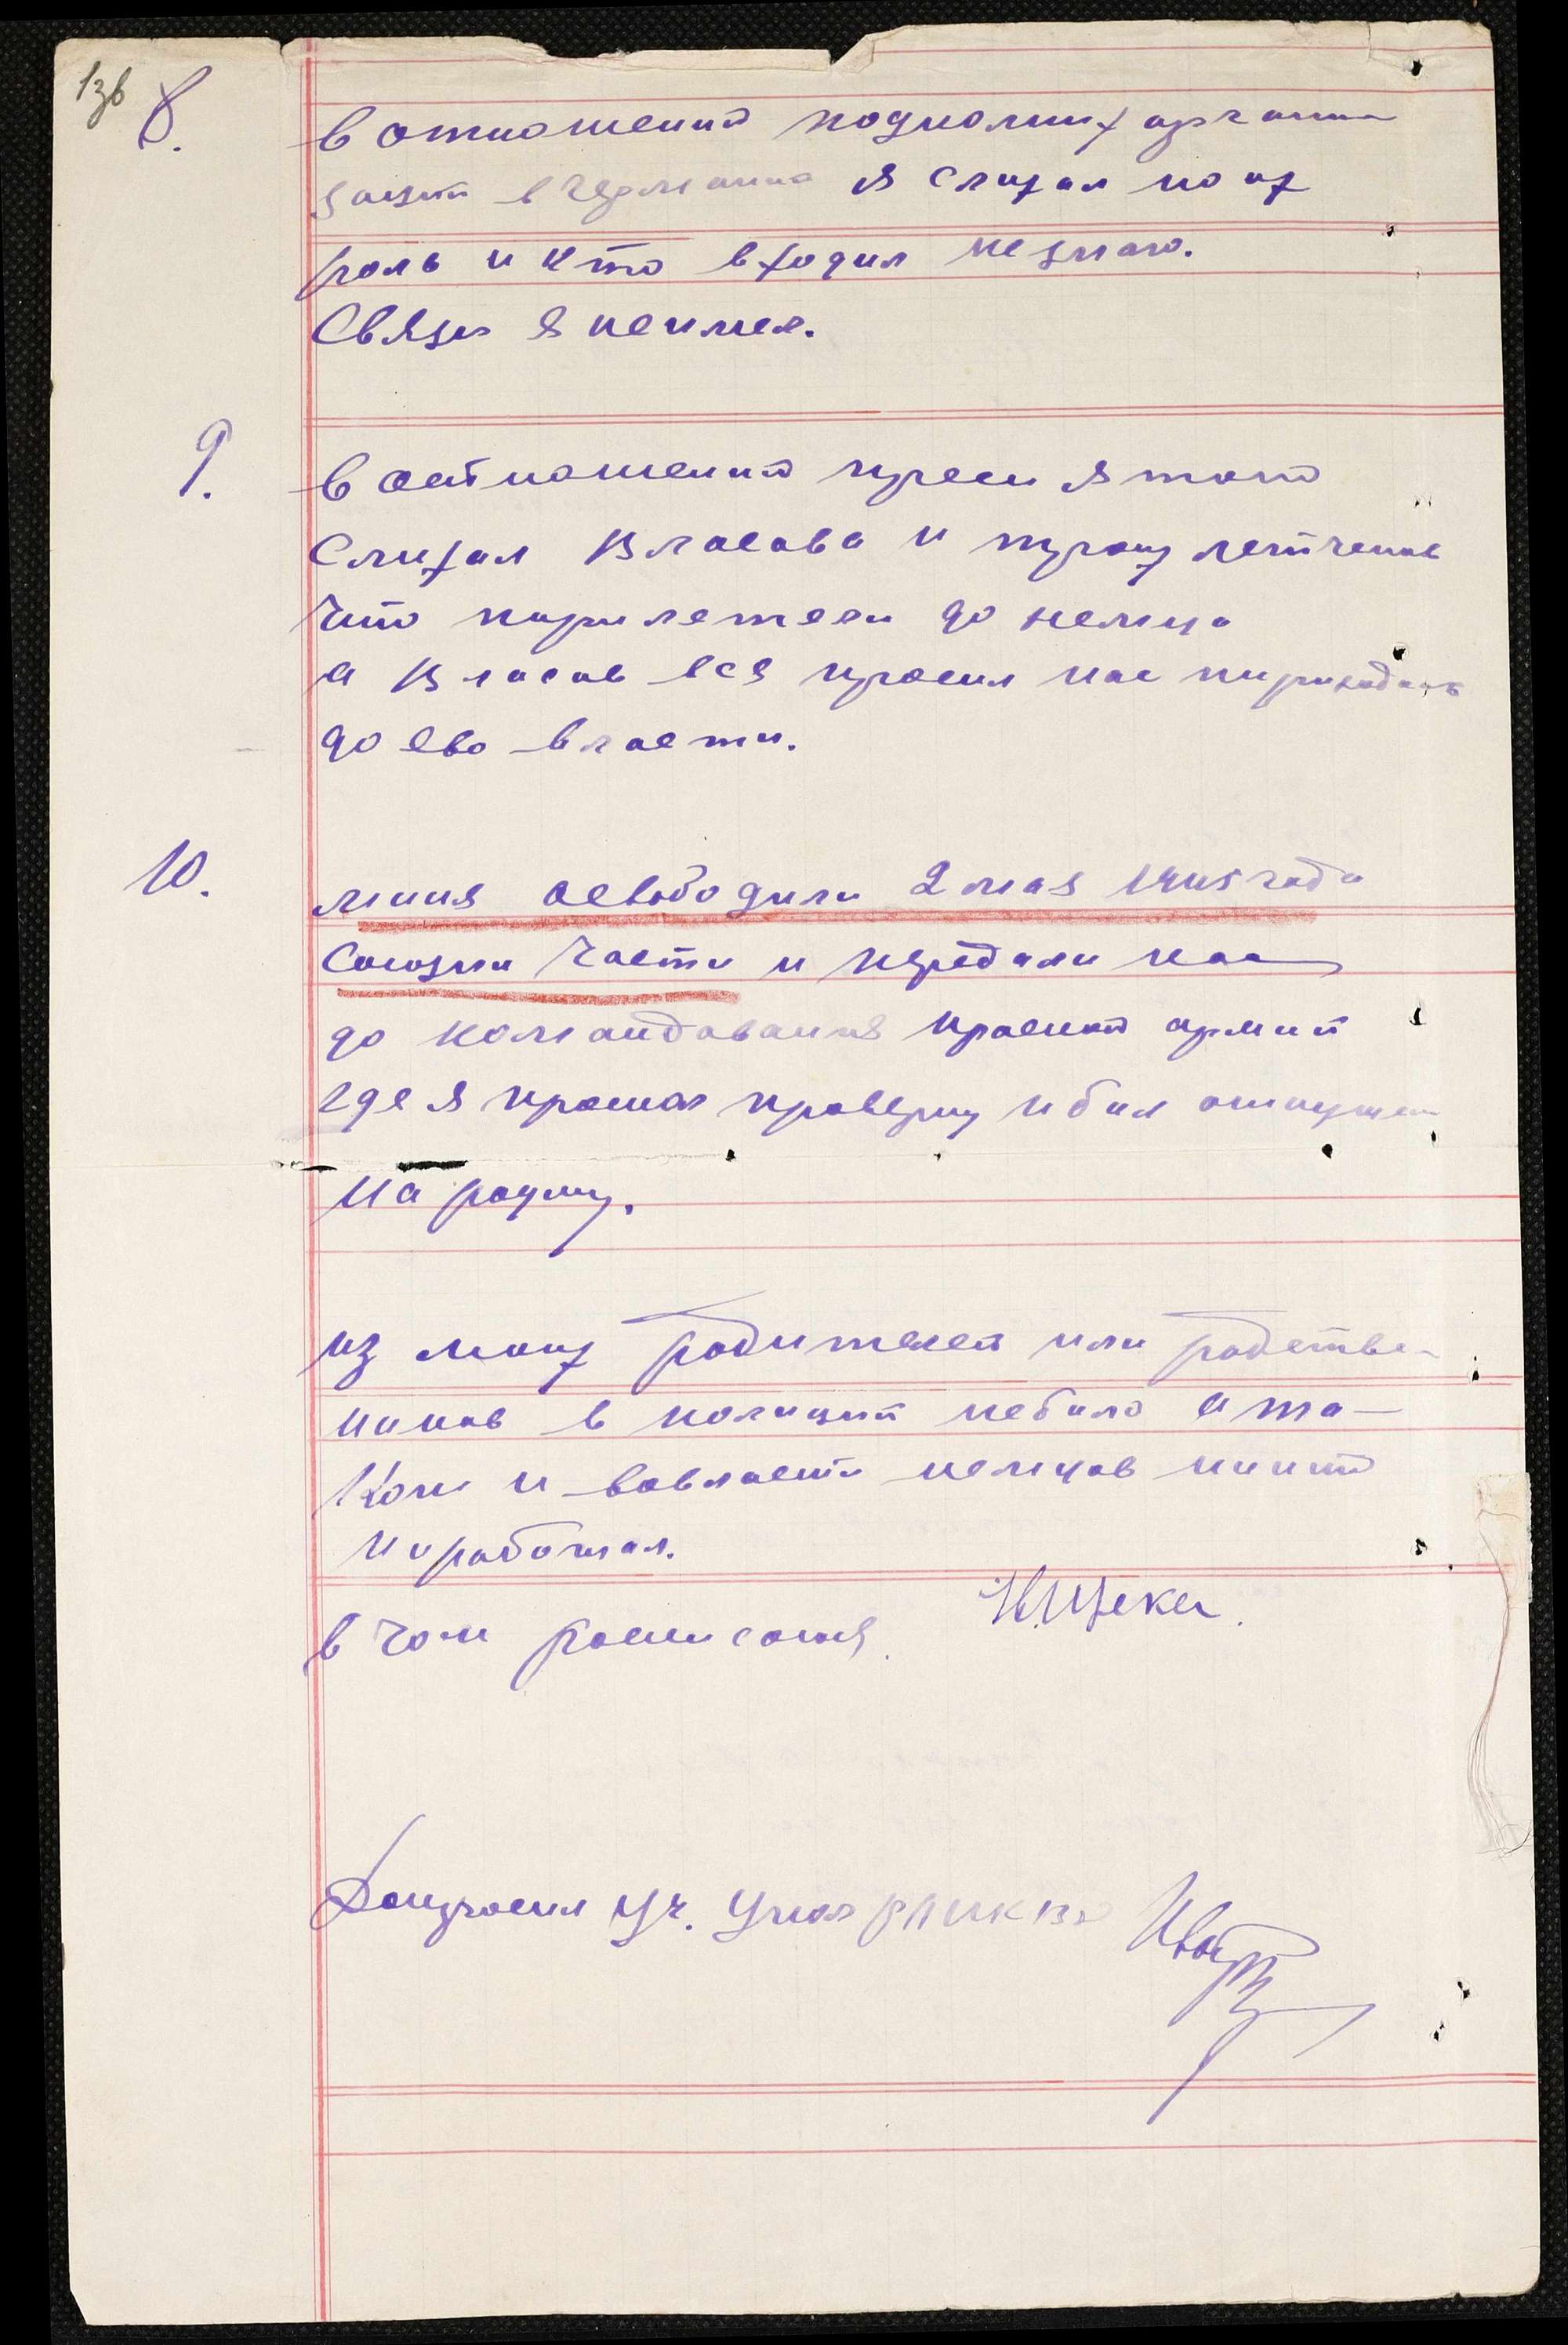 13б
8. в отношений подполних органи
зацый в Германии я слихал но их
роль и кто входил незнаю.
Связи я неимел.
9. в оотношений преси я токо
слихал Власава и двох льотчиков
што прилетели до немца
а Власов вся просил нас пириходить
до ево власти.
10. миня освободили 2 мая 1945 года
союзни части и передали нас
до командавания красной армий
где я прошол проверку и бил отпущен
на родину.
из моих родителей или родстве
ников в полицый небило а та-
кож и вовласти немцов нихто
ни работал.
в чом росписоюсь. Н.И.
Допросил Уч. Упол РО НКВД